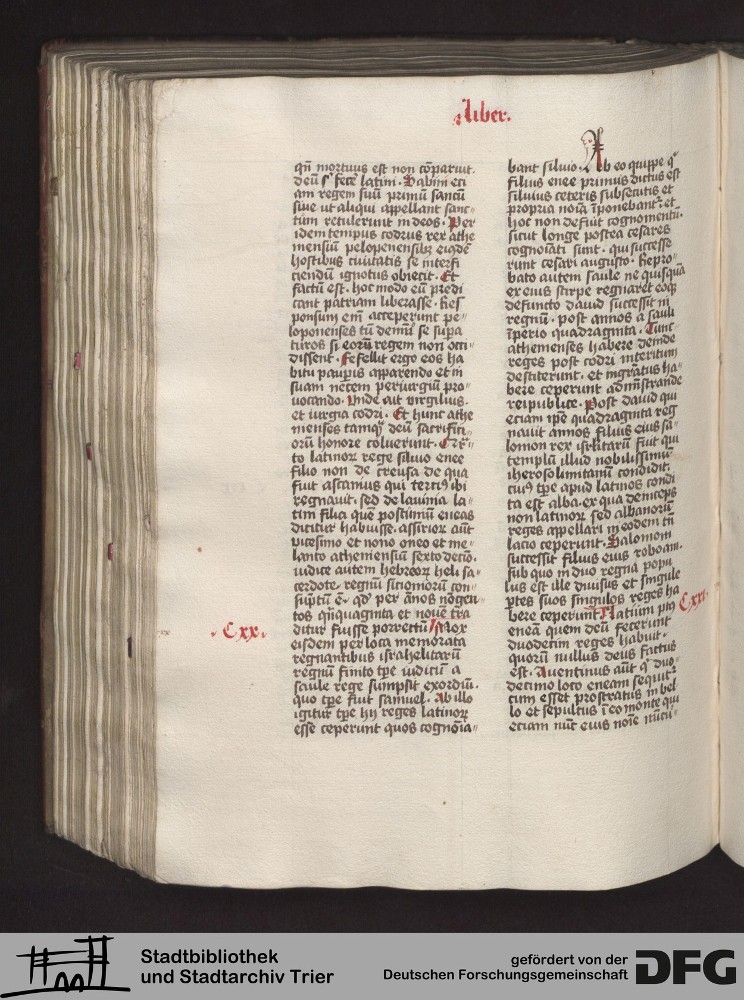 Liber.
qn̄ mortuus est non cōparuit.
deū s̓ fece᷒ latini. Sabini eci
am regem suū primū sancū
siue ut aliqui appellant sanc
tum retulerunt in deos. Per
idem tempus codrus rex athe
mensiū pelopenensibꝫ eiqdē
hostibus ciuitatis se interfi
ciendū ignotus obiecit. Et
factū est. hoc modo eū predi
cant patriam liberasse. Res
ponsum em̄ acceperunt pe
loponenses tū demū se supa
turos si eorū regem non occi
dissent. Fefellit ergo eos ha
bitu paupis apparendo et in
suam necem periurgiū pro
uocando. Vnde ait virgilius.
et iurgia codri. Et hunc athe
menses tamqȝ deū sacrifici
orū honore coluerunt. Qr̄
to latinoꝝ rege siluio enee
filio non de creusa de qua
fuit ascanius qui terciꝰ ibi
regnauit. sed de lauinia la
tini filia quē postumū eneas
dicitur habuisse. assirioꝝ aūt
vicesimo et nono oneo et me
lanto atheniensiū sextodecīo.
iudice autem hebreoꝝ heli sa
cerdote. regnū sitiomorū con
suptū ē. qd̓ per ānos nōgen
tos quīquaginta et nouē tra
Cxx.
ditur fuisse porrectū Mox
eisdem per loca memorata
regnantibus israhelitarū
regnū finito tꝑe iudicū a
saule rege sumpsit exordiū.
quo tꝑe fuit samuel. Ab illo
igitur tꝑe hij reges latinoꝝ
esse ceperunt quos cognoīa
bant siluio. Ab eo quippe qͥ
filius enee primus dictus est
siluius ceteris subsecutis et
propria noīa īponebant᷒. et
hoc non defuit cognomentū.
sicut longe postea cesares
cognoīati sunt. qui successe
runt cesari augusto. Repro
bato autem saule ne quisquā
ex eius stirpe regnaret eoqȝ
defuncto dauid successit in
regnū. post annos a sauli
īperio quadraginta. Tunc
athemenses habere deinde
reges post codri interitum
destiterunt. et mgr̄atus ha
bere ceperunt admīstrande
reipublice. Post dauid qui
eciam ip̄e quadraginta reg
nauit annos filius eius sa
lomon rex isr̄litarū fuit qui
templū illud nobilissimū
iherosolimitanū condidit.
cuiꝰ tꝑe apud latinos condi
ta est alba. ex qua deinceps
non latinoꝝ sed albanorū
reges appellari in eodem tn̄
lacio ceperunt. Salomoni
successit filius eius roboam.
sub quo in duo regna popu
lus est ille diuisus et singule
ꝑtes suos singulos reges ha
Cxxi.
bere ceperunt Latium pꝰ
eneā quem deū fecerunt
vndecim reges habuit.
quorū nullus deus factus
est. Auentinus aūt qͥ duo
decimo loco eneam sequit᷒
cum esset prostratus in bel
lo et sepultus ī eo monte qui
etiam nūc eius noīe nūcu
Stadtbibliothek
und Stadtarchiv Trier
gefördert von der
Deutschen Forschungsgemeinschaft
DFG